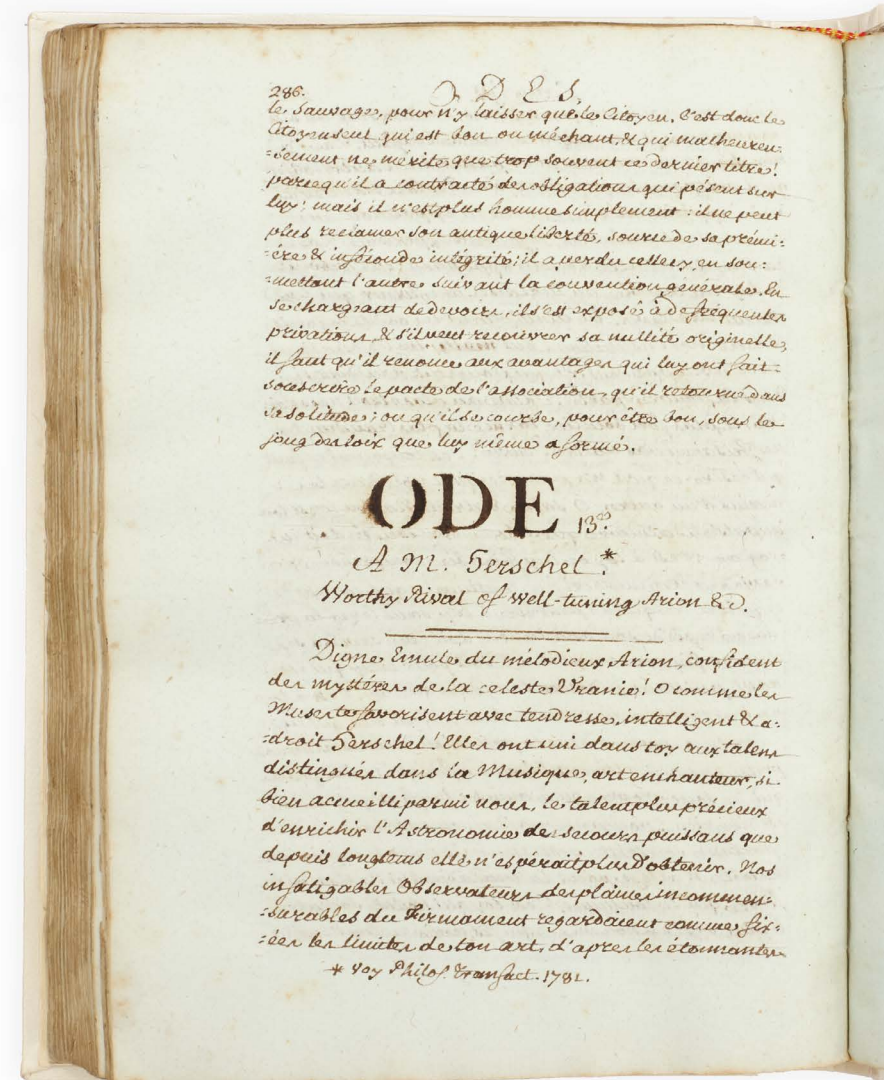 286. ODES.
le Sauvage, pour n'y laisser que le Citoyen. C'est donc le
Citoyen seul qui est bon ou méchant, & qui malheureu-
=sement ne mérite que trop souvent ce dernier titre!
parcequ'il a contracté des obligations qui pésent sur
luy; mais il n'est plus homme simplement: il ne peut
plus reclamer son antique liberté, source de sa prémi-
=ére & inféconde intégrité; il a perdu celle cy, en sou-
=mettant l'autre suivant la convention générale. En
se chargeant de devoirs, il s'est exposé à de fréquentes
privations, & s'il veut recouvrer sa nullité originelle,
il faut qu'il renonce aux avantages qui luy ont fait
souscrire le pacte de l'association, qu'il retourne dans
sa solitude; ou qu'il se courbe, pour être bon, sous le
joug des loix que luy même a formé.
ODE 13e.
A M. Herschel.*
Worthy Rival of well-tuning Arion &c.
Digne Emule du mélodieux Arion, confident
des mystéres de la celeste Uranie! O comme les
Muses te favorisent avec tendresse, intelligent & a-
=droit Herschel! Elles ont uni dans toy aux talens
distingués dans la Musique, art enchanteur, si
bien accueilli parmi nous, le talent plus précieux
d'enrichir l'Astronomie de secours puissans que
depuis longtems elle n'espérait plus d'obtenir. Nos
infatigables Observateurs des plaines incommen-
=surables du Firmament regardaient comme fix-
=ées les limites de ton art, d'apres les étonnantes
* Voy Philos. Transact. 1781.